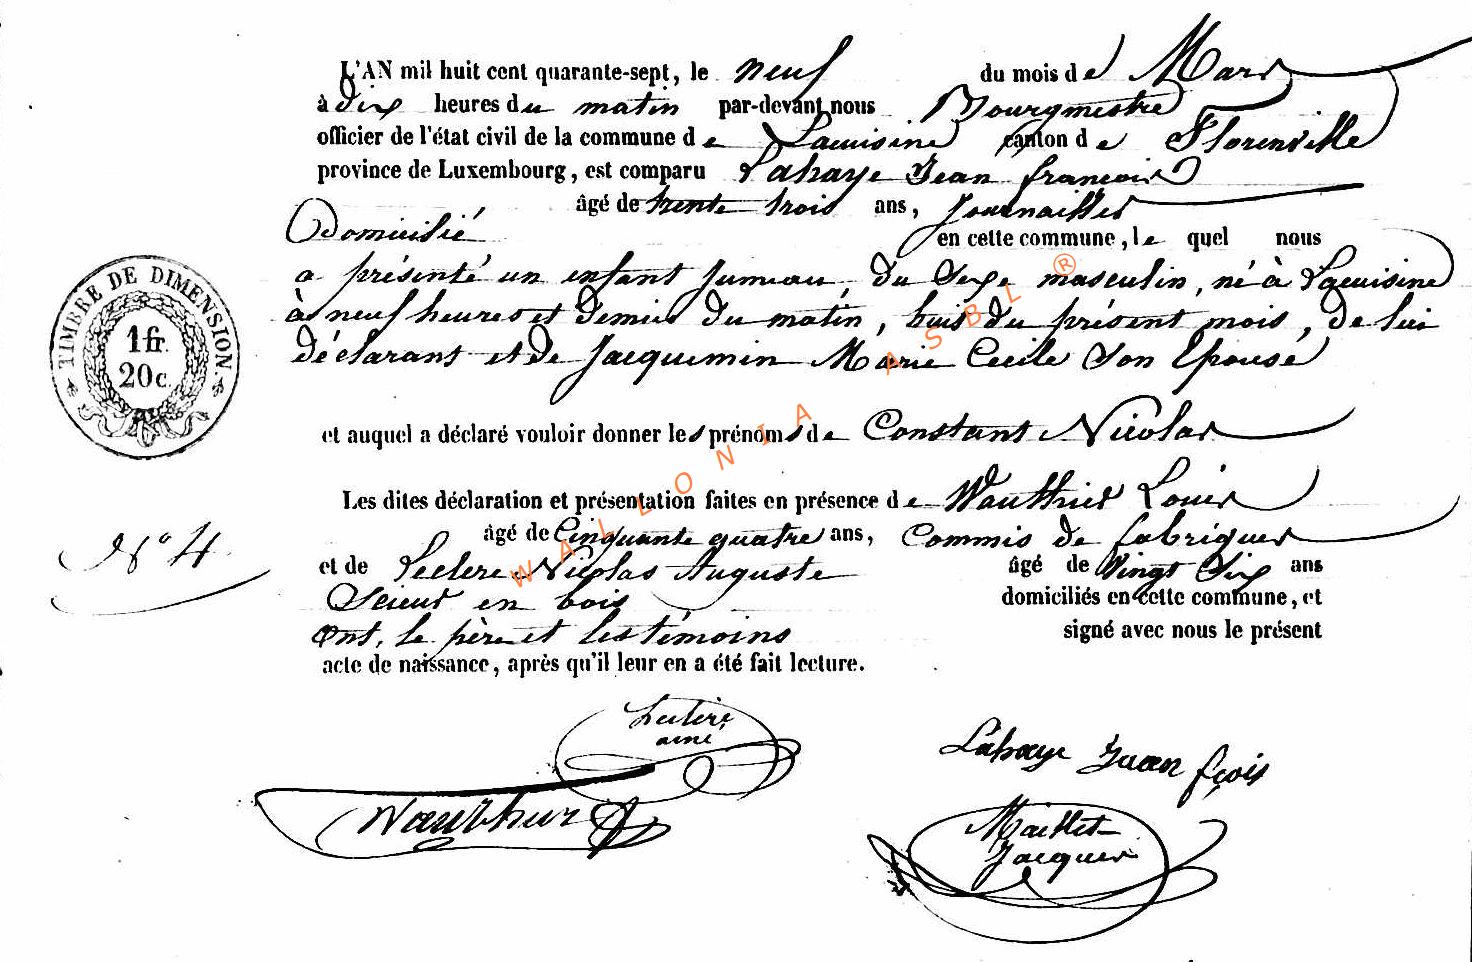 L'AN mil huit cent quarante-sept, le neuf du mois de Mars
à dix heures du matin par-devant nous Bourgmestre
officier de l'état civil de la commune de Lacuisine canton de Florenville
province de Luxembourg, est comparu Lahaye Jean françois
âgé de trente trois ans, Journaillier
Domicilié en cette commune, le quel nous
a présenté un enfant Jumeau, du Sexe masculin, né à Lacuisine
à neuf heures et demie du matin, huit du présent mois, de lui
déclarant et de Jacquemin Marie Cecile Son Epouse
et auquel a déclaré vouloir donner les prénoms de Constant Nicolas
Les dites déclaration et présentation faites en présence de Wauthier Louis
âgé de Cinquante quatre ans, Commis de fabriques
et de Leclere Nicolas Auguste âgé de Vingt Six ans
Scieur en bois domiciliés en cette commune, et
ont, le père et les témoins signé avec nous le présent
acte de naissance, après qu'il leur en a été fait lecture.
TIMBRE DE DIMENSION
1 fr.
20 c.
N° 4
Leclere
ainé
Wauthier
Lahaye Jean fçois
Maillet
Jacques
WALLONIA ASBL ®